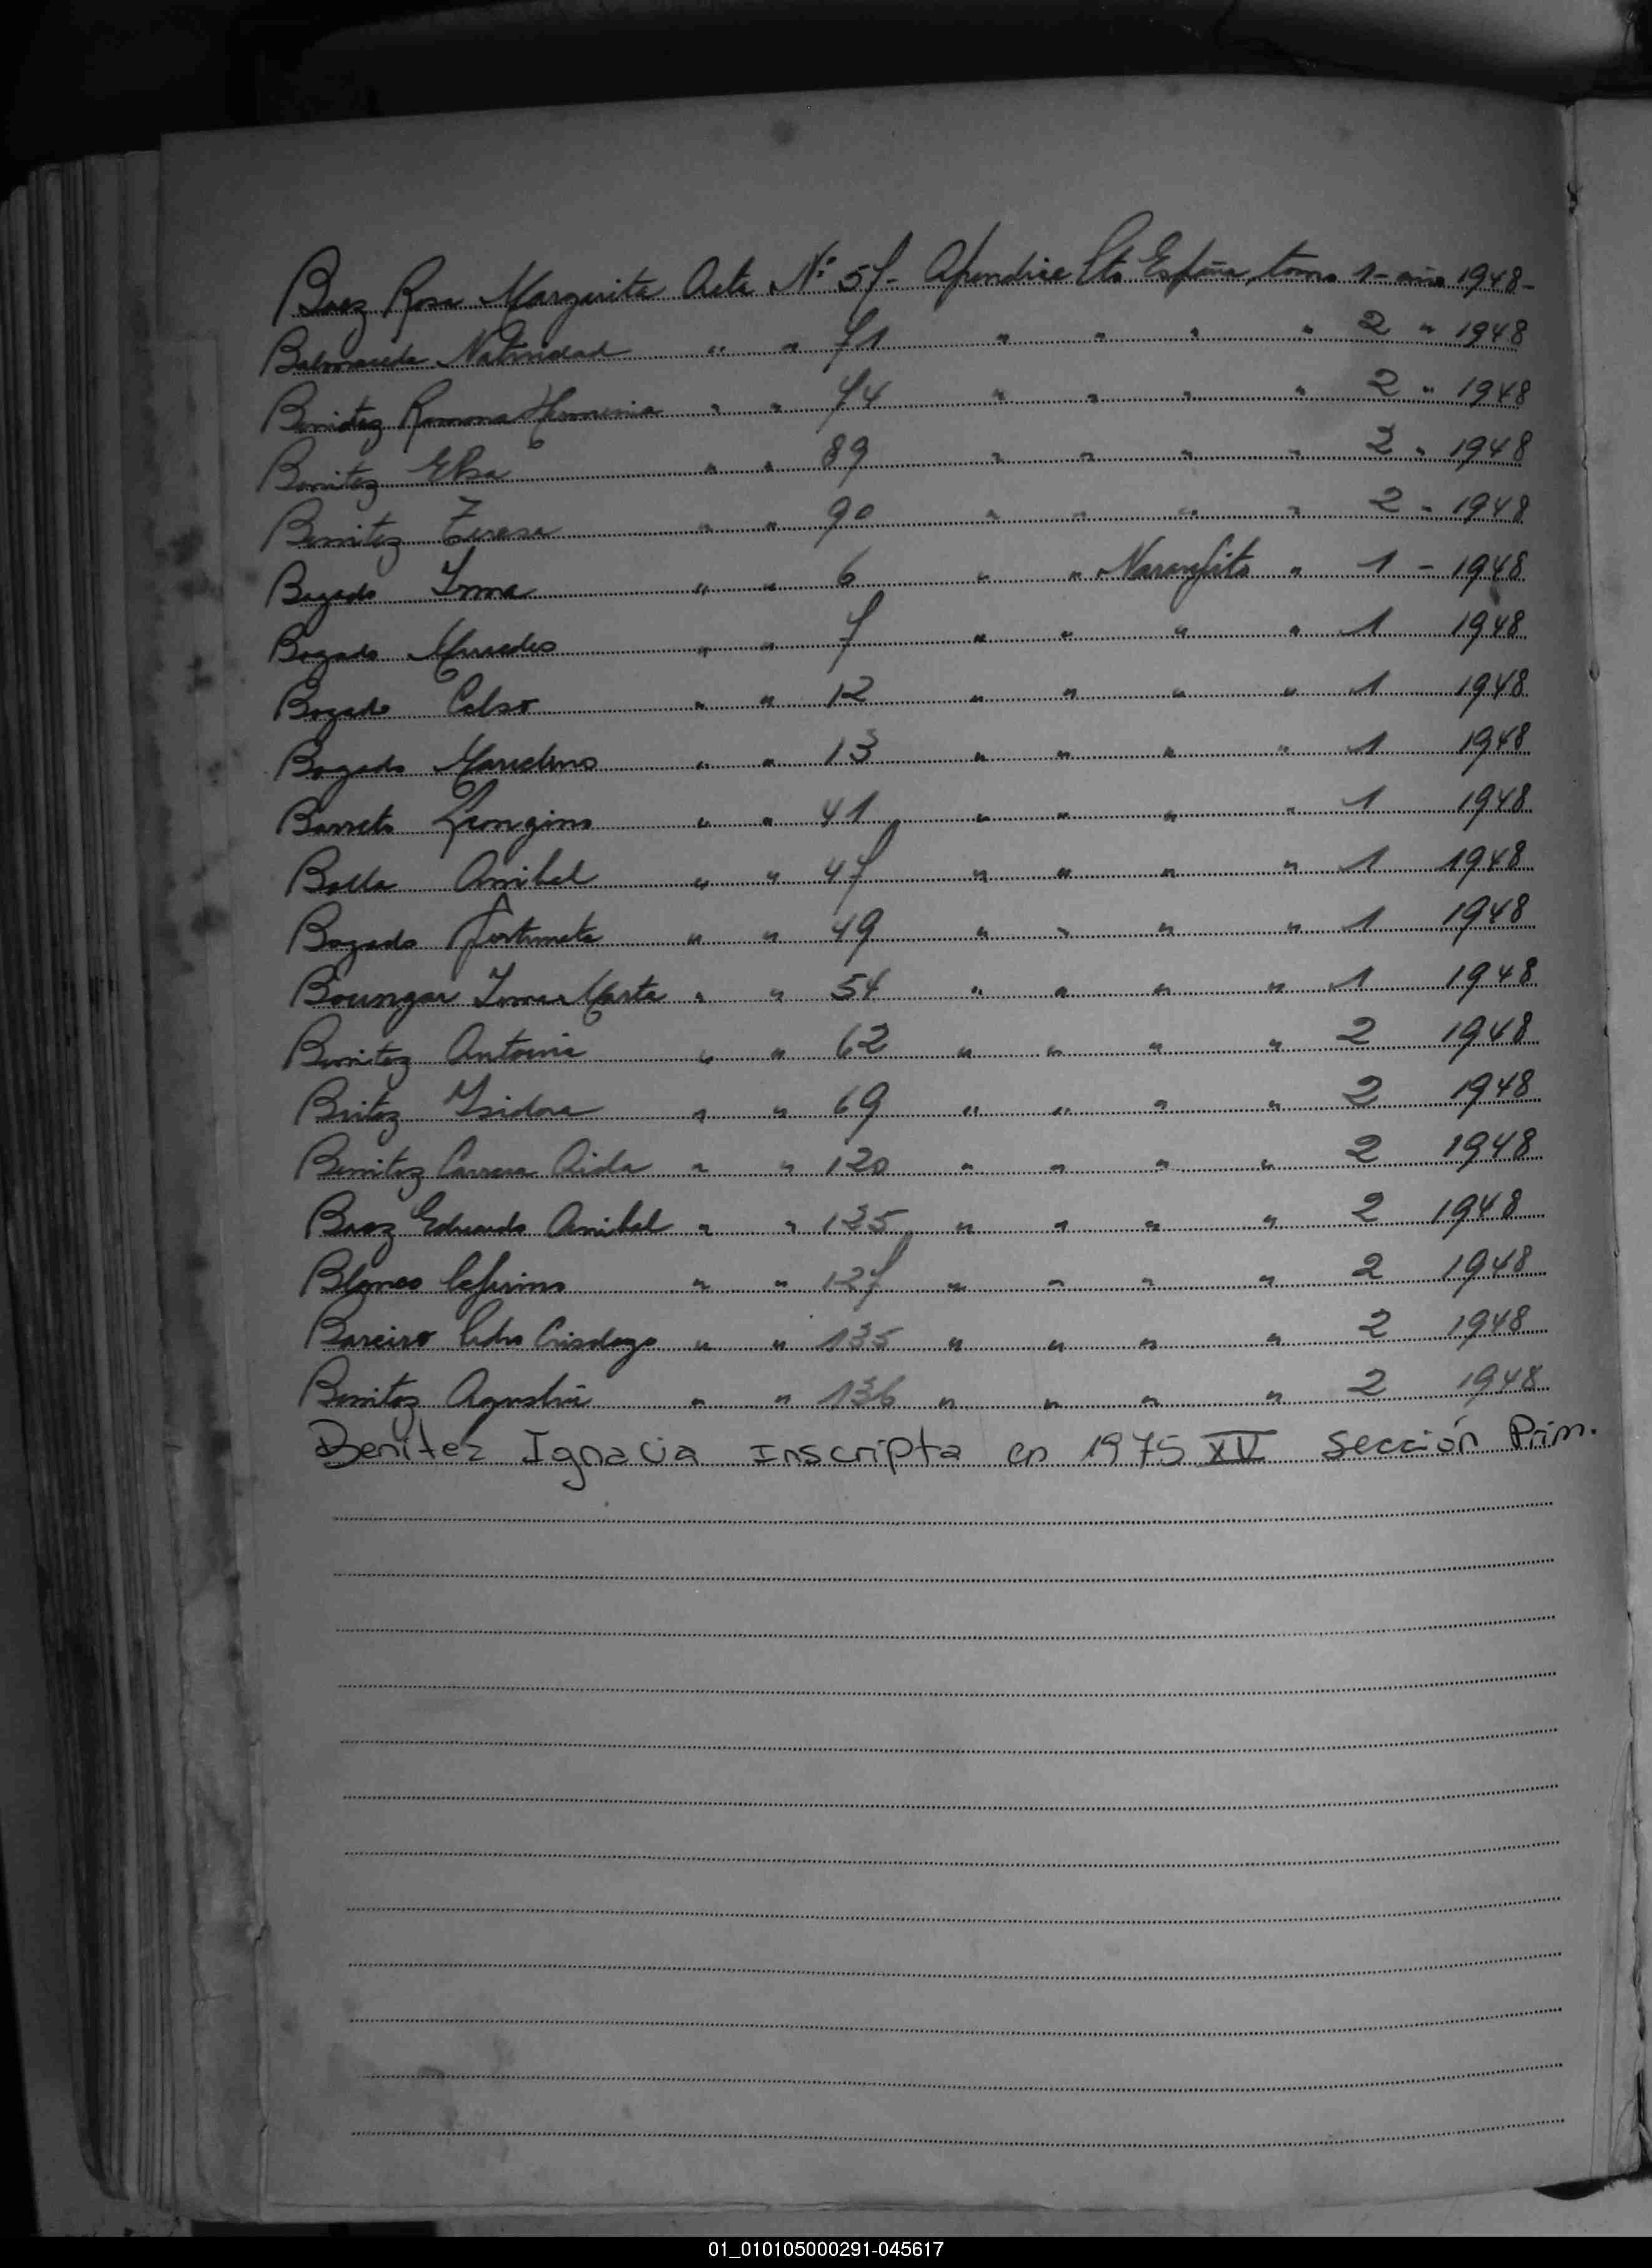 Baez Rosa Margarita Acta Nº 57- Apendice Pto España, tomo 1- año 1948-
Balmaceda Natividad " " 71 " " " " 2 " 1948
Benitez Ramona Herminia " " 74 " " " " 2 " 1948
Benitez Elsa " " 89 " " " " 2 " 1948
Benitez Teresa " " 90 " " " " 2 " 1948
Bogado Irma " " 6 " " Naranjito " 1 - 1948
Bogado Mercedes " " 7 " " " " 1 1948
Bogado Celso " " 12 " " " " 1 1948
Bogado Marcelino " " 13 " " " " 1 1948
Barreto Longino " " 41 " " " " 1 1948
Anibal " " 47 " " " " 1 1948
Bogado Fortunata " " 49 " " " " 1 1948
Irma Marta " " 54 " " " " 1 1948
Benitez Antonia " " 62 " " " " 2 1948
Britez Isidora " " 69 " " " " 2 1948
Benitez Aida " " 120 " " " " 2 1948
Baez Eduardo Anibal " " 125 " " " " 2 1948
Blanco Ceferino " " 127 " " " " 2 1948
Bareiro Pedro " " 135 " " " " 2 1948
Benitez Agustin " " 136 " " " " 2 1948
Benitez Ignacia Inscripta en 1975 XV Sección Prim.
01_010105000291-045617